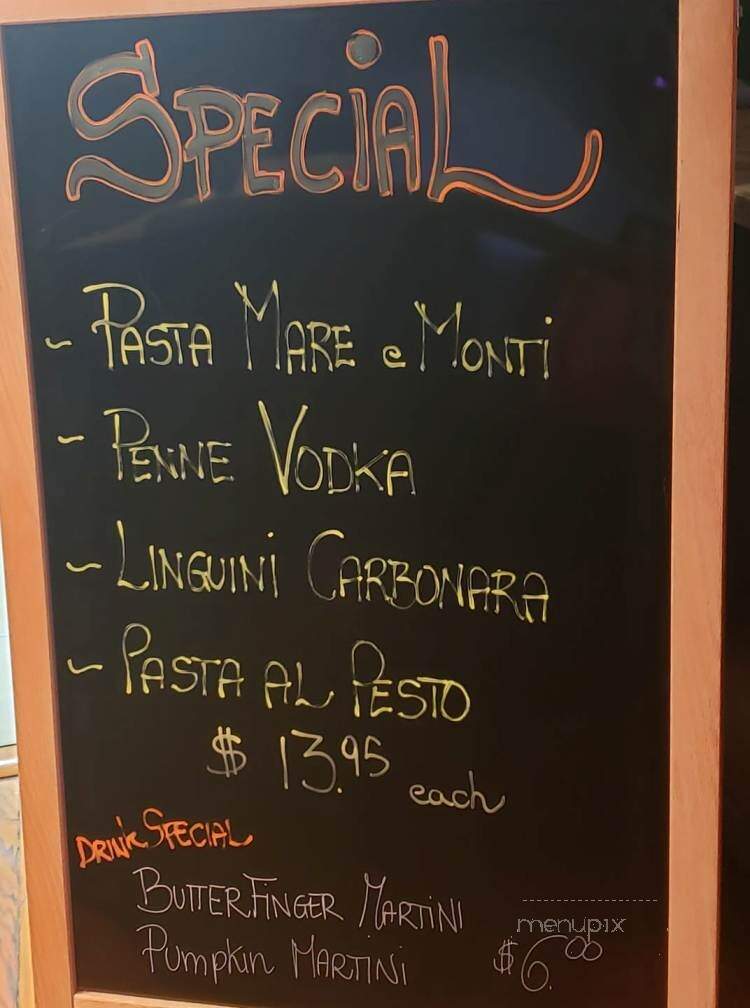 SPECiAL
~ PASTA MARE e MONTi
~ PENNE VODKA
~ LiNGUiNi CARBONARA
~ PASTA AL PESTO
$ 13.95 each
DRiNK SPECiAL
BUTTERFiNGER MARTiNi
PumpKin MARTiNi $6.00
menupix